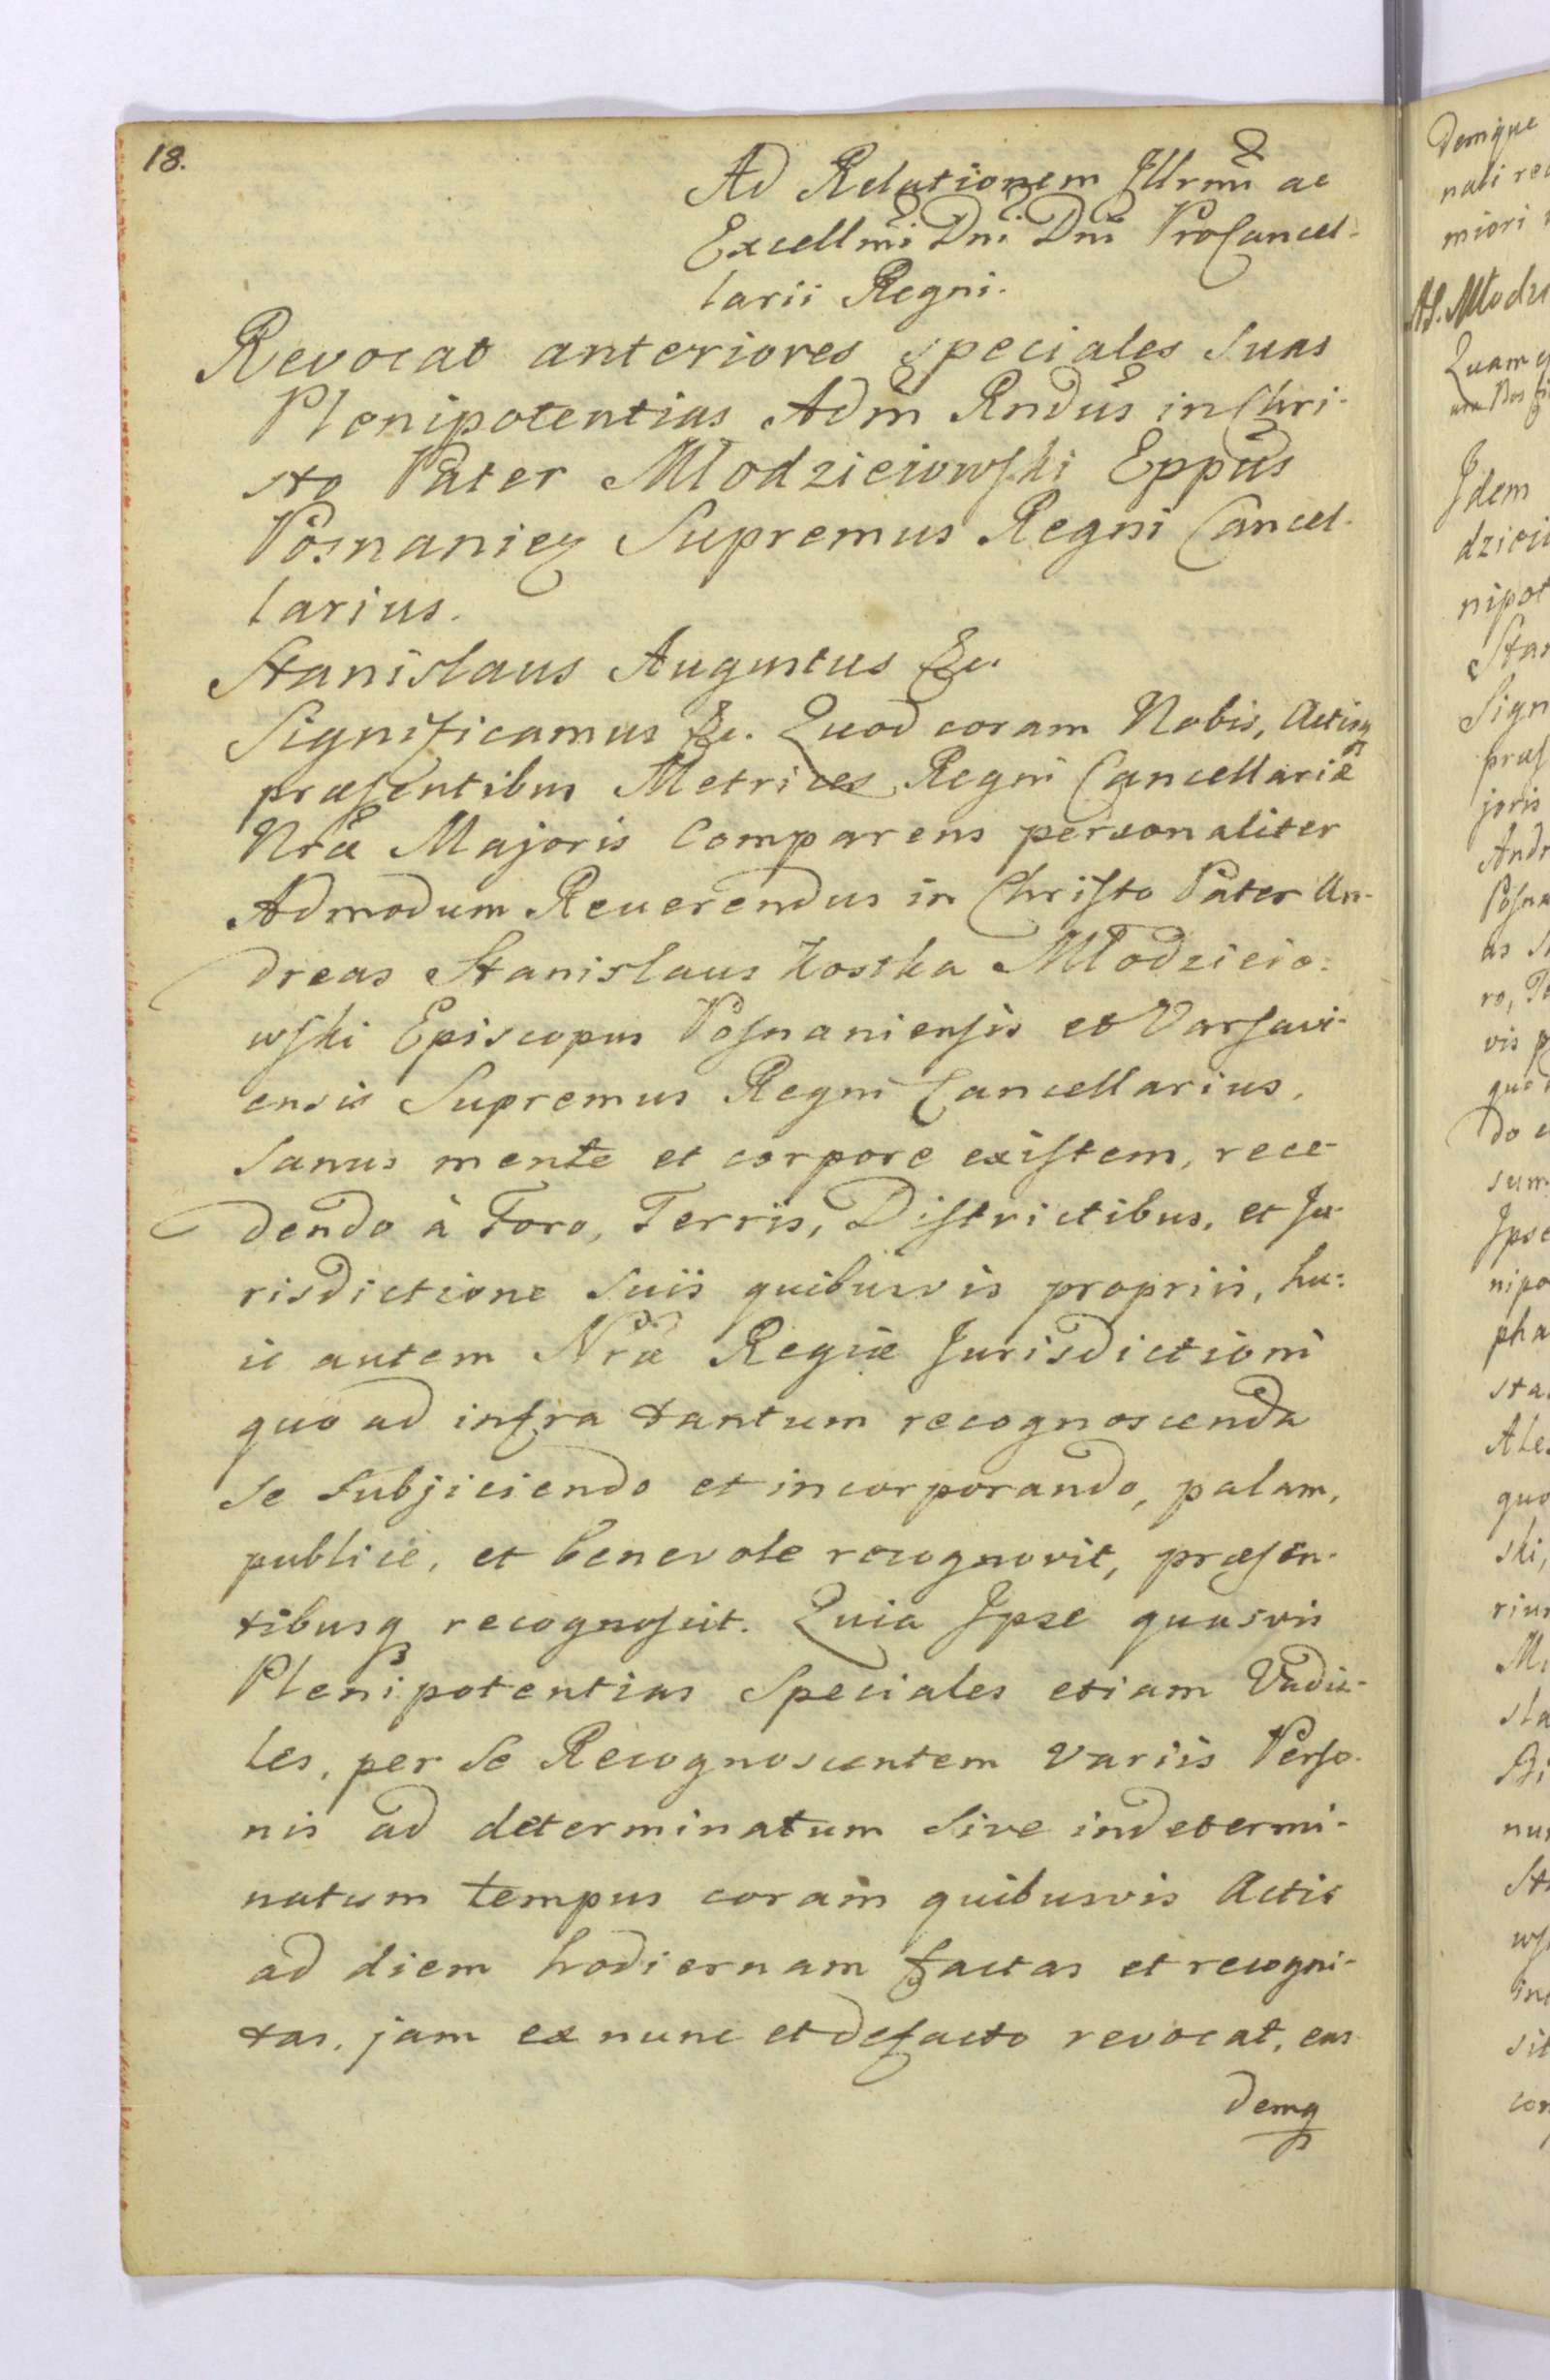 18.
Ad Relationem Jllrmi ac
Excellmi Dni Dni ProCancel-
larii Regni.
Revocat anteriores speciales Suas
Plenipotentias Adm Rndus in Chri-
sto Pater Młodzieiowski Eppus
Posnaniez Supremus Regni Cancel-
larius.
Stanislaus Augustus &c.
Significamus &c. Quod coram Nobis, Actisq
præsentibus Metrices Regni Cancellariæ
Nræ Majoris Comparens personaliter
Admodum Reuerendus in Christo Pater An-
dreas Stanislaus Kostka Młodzieio-
wski Episcopus Posnaniensis et Varsavi-
ensis Supremus Regni Cancellarius,
Sanus mente et corpore existem, rece-
dendo à Foro, Terris, Districtibus, et Ju-
risdictione Suis quibusvis propriis, hu-
ic autem Nræ Regiæ Jurisdictioni
quo ad infra tantum recognoscenda
Se Subjiciendo et incorporando, palam,
publicè, et benevole recognovit, præsen-
tibusq recognoscit. Quia Jpse quasvis
Plenipotentias Speciales etiam Vadia-
les, per Se Recognoscentem variis Perso-
nis ad determinatum Sive indetermi-
natum tempus coram quibusvis Actis
ad diem hodiernam factas et recogni-
tas, jam ex nunc et defacto revocat, eas
demq
Demque
nati
miori
Quam
Jdem
dziei
nipot
Stan
Sign
præs
joris
Andr
Posna
as
ro,
vis
do
sum
Jpse
nipo
pha
sta
Ale
quo
ski,
riu
sta
nu
ws
in
sit
con